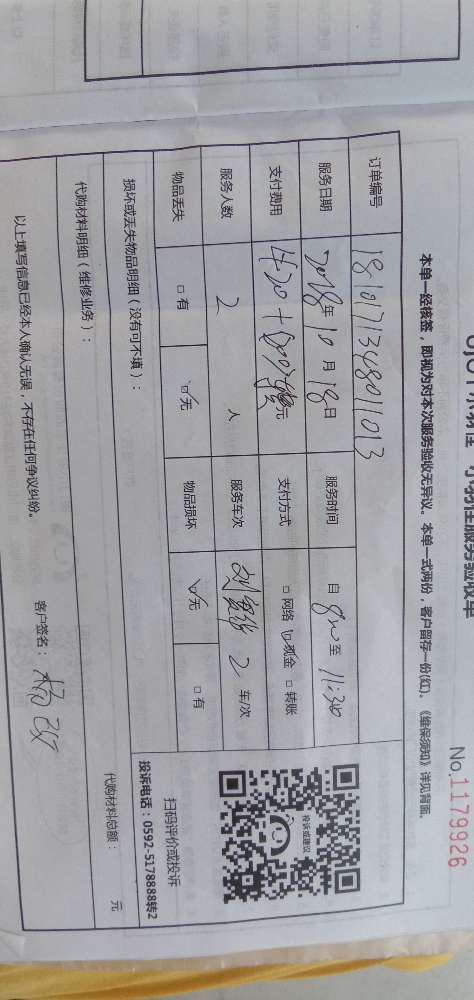 小羽佳服务验收单
No.1179926
本单一经核签，即视为对本次服务验收无异议。本单一式两份，客户留存一份(红)。《维保须知》详见背面。
订单编号 1810171348011013
服务日期 2018年10月18日 服务时间 自 8:00 至 11:30
支付费用 420+ 元 支付方式 □ 网络 ☑ 现金 □ 转账
服务人数 2 人 服务车次 2 车/次
物品丢失 □ 有 ☑ 无 物品损坏 ☑ 无 □ 有
投诉或建议
扫码评价或投诉
投诉电话：0592-5178888转2
损坏或丢失物品明细（没有可不填）：
代购材料明细（维修业务）： 代购材料总额： 元
以上填写信息已经本人确认无误，不存在任何争议纠纷。
客户签名：